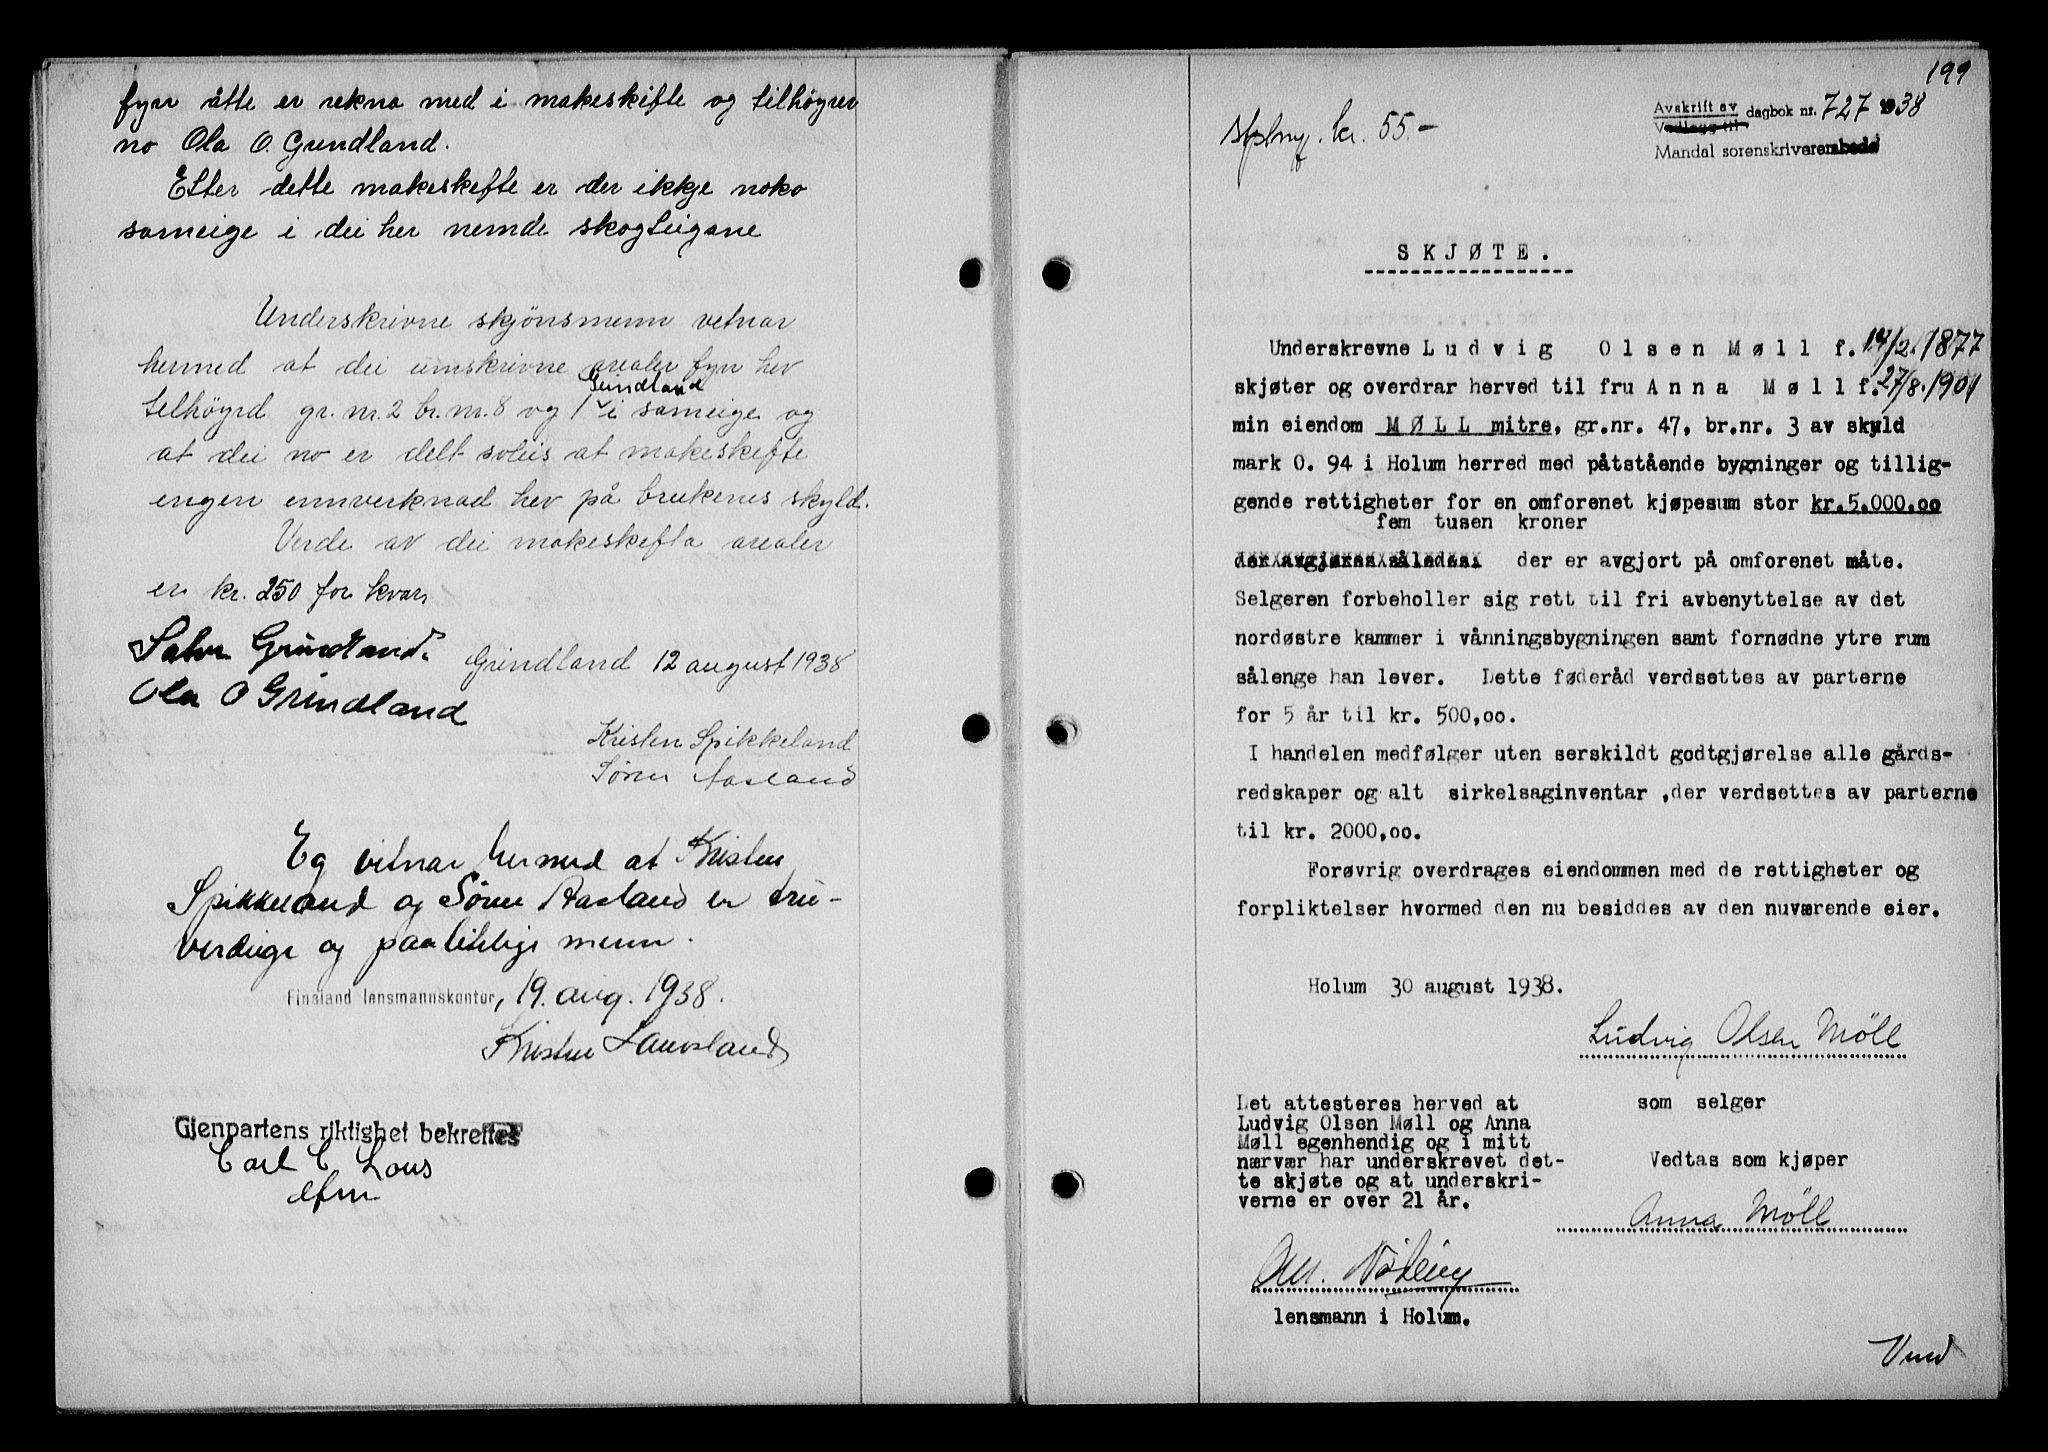 fyrr åtte er rekna med i makeskifte og tilhøyrer
no Ola O. Grundland.
Etter dette makeskefte er der ikkje noko
sameige i dei her nemde skogteigane
Underskrivne skjönsmenn vetnar
hermed at dei umskrivne arealer fyrr hev
Grindland
tilhöyrd gr. nr. 2 br. nr. 8 og 1 i sameige og
at dei no er delt soleis at makeskefte
engen ennverknad hev på brukenes skyld.
Verde av dei makeskefta arealer
er kr. 250 for kvar,
Salve Grindland.
Grindland 12 august 1938
Ola O Grindland
Kristen Spikkeland
Søren Aasland
Eg vitnar hermed at Kristen
Spikkeland og Søren Aasland er tru-
verdige og paalitelige menn.
Finsland lensmannskontor, 19. aug. 1938.
Kristen Lauvsland
Gjenpartens riktighet bekreftes
Carl C. Lous
efm
199
Avskrift av
Vedlegg til dagbok nr. 727 1938
Mandal sorenskriverembede
kr. 55.-
SKJØTE.
Underskrevne Ludvig Olsen Møll f. 14/2.1877
skjøter og overdrar herved til fru Anna Møll f. 27/8.1901
min eiendom MØLL mitre, gr.nr. 47, br.nr. 3 av skyld
mark 0. 94 i Holum herred med påtstående bygninger og tillig-
gende rettigheter for en omforenet kjøpesum stor kr.5.000.oo
fem tusen kroner
der avgjøres således: der er avgjort på omforenet måte.
Selgeren forbeholler sig rett til fri avbenyttelse av det
nordøstre kammer i vånningsbygningen samt fornødne ytre rum
sålenge han lever. Dette føderåd verdsettes av parterne
for 5 år til kr. 500,oo.
I handelen medfølger uten serskildt godtgjørelse alle gårds-
redskaper og alt sirkelsaginventar ,der verdsettes av parterne
til kr. 2000,oo.
Forøvrig overdrages eiendommen med de rettigheter og
forpliktelser hvormed den nu besiddes av den nuværende eier.
Holum 30 august 1938.
Ludvig Olsen Möll
som selger
Det attesteres herved at
Ludvig Olsen Møll og Anna
Møll egenhendig og i mitt
nærvær har underskrevet det-
te skjøte og at underskri-
verne er over 21 år.
Vedtas som kjøper
Anna Möll
lensmann i Holum.
Vend